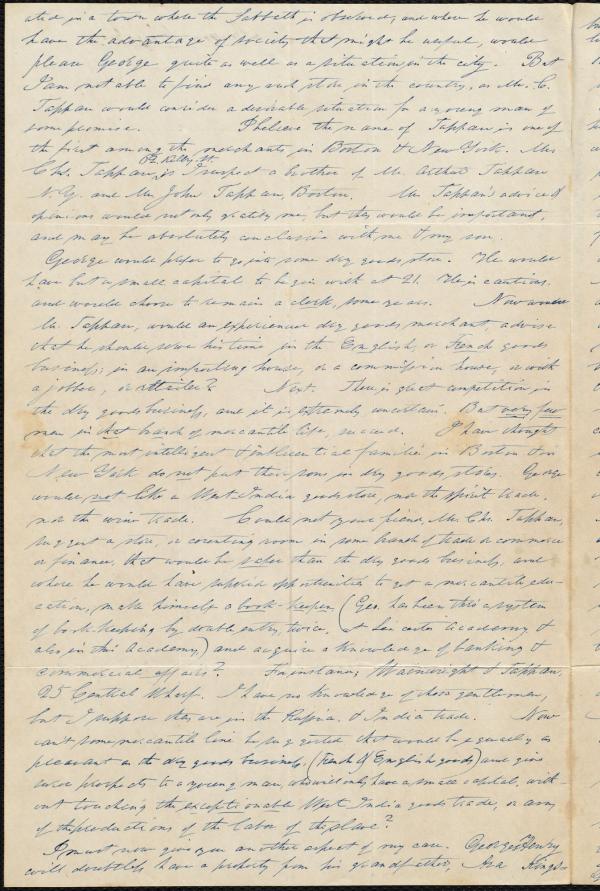 ated in a town where the Sabbath is observed, and where he would
have the advantage of society that might be useful, would
please George quite as well as a situation in the city. But
I am not able to find any such store, in the country, as Mr. C.
Tappan would consider a desirable situation for a young man of
some promise. I believe the name of Tappan is one of
the first among the merchants in Boston & New York. Mr.
62 Kilby St.
Chs. Tappan, is I suspect a brother of Mr. Arthur Tappan
N.Y. and Mr John Tappan, Boston. Mr Tappan's advice &
opinions would not only gratify me, but they would be important,
and may be absolutely conclusive with me & my son.
George would prefer to go into some dry goods store. He would
have but a small capital to begin with at 21. He is cautious,
and would choose to remain a clerk, some years. Now would
Mr. Tappan, would an experienced dry goods merchant, advise
that he should serve his time in the English, or French goods
business; in an importing house, or a commission house, or with
a jobber, or retailer? Next. There is great competition, in
the dry goods business, and it is extremely uncertain. But very few
men in that branch of mercantile life, succeed. I have thought
that the most intelligent & influential families in Boston & in
New York do not put their sons in dry goods, stores. George
would, not like a West India goods store, nor the spirit trade,
nor the wine trade. Could not your friend, Mr. Chs. Tappan,
suggest a store, or counting room in some branch of trade or commerce
or finance, that would be safer than the dry goods business, and
where he would have superior opportunities to get a mercantile edu-
cation, make himself a book-keeper, (Geo. has been thro' a system
of book-keeping by double entry, twice, at Leicester Academy &
also in this Academy) and acquire a knowledge of banking &
commercial affairs? For instance, Wainwright & Tappan,
25 Central Wharf. I have no knowledge of those gentlemen,
but I suppose they are in the Russia & India trade. Now
can't some mercantile line be suggested that would be equally as
pleasant as the dry goods business, (French & English goods) and give
sure prospects to a young man, who will only have a small capital, with-
out touching the exceptionable West India goods trade, or any
of the productions of the labor of the slave?
I must now give you another aspect of my case. George Henry
will doubtless have a property from his grandfather, Asa